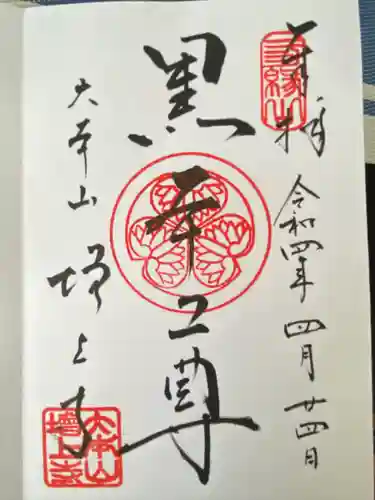 奉拝
三縁山
令和四年四月廿四日
黒本尊
大本山
増上寺
大本山
增上寺